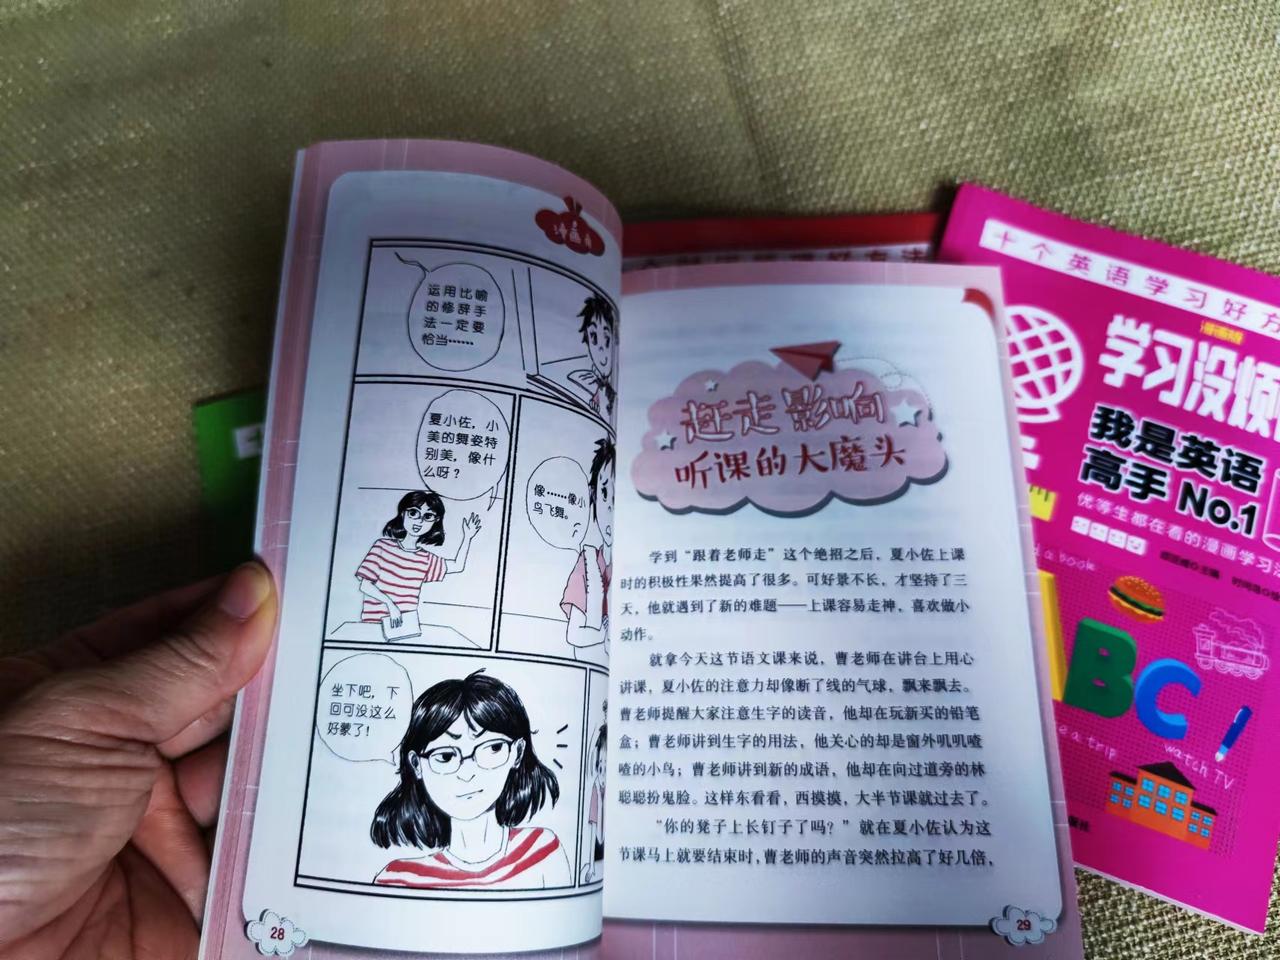 漫画角
运用比喻
的修辞手
法一定要
恰当……
夏小佐，小
美的舞姿特
别美，像什
么呀？
像……像小
鸟飞舞。
坐下吧，下
回可没这么
好蒙了！
28
赶走影响
听课的大魔头
学到“跟着老师走”这个绝招之后，夏小佐上课
时的积极性果然提高了很多。可好景不长，才坚持了三
天，他就遇到了新的难题——上课容易走神，喜欢做小
动作。
就拿今天这节语文课来说，曹老师在讲台上用心
讲课，夏小佐的注意力却像断了线的气球，飘来飘去。
曹老师提醒大家注意生字的读音，他却在玩新买的铅笔
盒；曹老师讲到生字的用法，他关心的却是窗外叽叽喳
喳的小鸟；曹老师讲到新的成语，他却在向过道旁的林
聪聪扮鬼脸。这样东看看，西摸摸，大半节课就过去了。
“你的凳子上长钉子了吗？”就在夏小佐认为这
节课马上就要结束时，曹老师的声音突然拉高了好几倍，
29
十个英语学习好方
漫画版
学习没烦
我是英语
高手 No.1
优等生都在看的漫画学习
a book
ABC
e a trip
watch TV